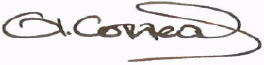 G. Correa